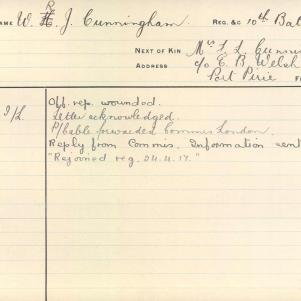 NAME W. R. J. Cunningham REG. &C 10th Bat
NEXT OF KIN Mrs L. L. Cunnin
ADDRESS c/o E. B. Welsh
Port Pirie
Off. rep. wounded.
Letter acknowledged.
P/Cable forwarded Commis London.
Reply from Commis. Information sent
"Rejoined reg. 24.4.17."